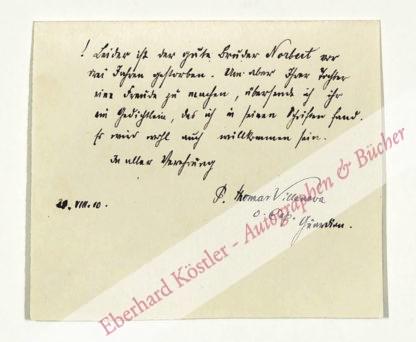 ! Leider ist der gute Bruder Norbert vor
drei Jahren gestorben. Um aber Ihrer Tochter
eine Freude zu machen, übersende ich ihr
ein Gedichtlein, das ich in seinen Schriften fand.
Es wird wohl auch willkommen sein.
In aller Verehrung
P. Thomas Villanova
O. Cap.
Guardian.
29. VIII. 10.
Eberhard Köstler - Autographen & Bücher